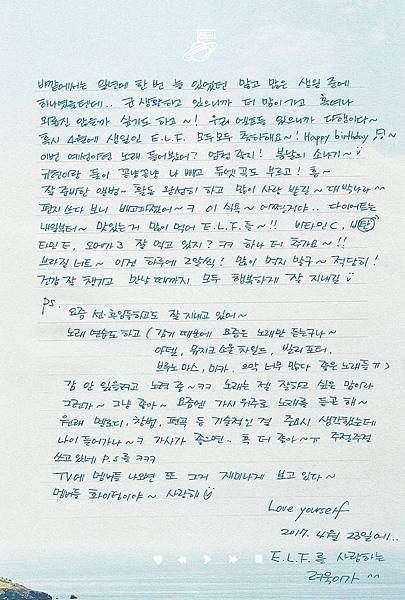 바깥에서는 일년에 한 번 늘 있었던 많고 많은 생일 중에
하나였을텐데.. 군 생활하고 있으니까 더 많이 가고 혹여나
외롭진 않을까 싶기도 하고~! 우리 엘프들 있으니까 다행이다~
혹시 4월에 생일인 E.L.F 모두모두 축하해요~! Happy birthday
이번 예성이형 노래 들어봤어? 엄청 좋지! 봄날의 소나기~
규현이랑 둘이 꽁냥꽁냥 나 빼고 듀엣곡도 부르고! 흥~
잘 준비한 앨범~ 활동 왕성히 하고 많이 사랑 받길~ 대박나라~
편지 쓰다 보니 배고파졌어~ㅋ 이 식욕~ 어쩔거야.. 다이어트는
내일부터~ 맛있는거 많이 먹어 E.L.F들~!! 비타민C, 비타
민E, 오메가3 잘 먹고 있지? ㅋㅋ 하나 더 추가요~!!
브라질너트~ 이건 하루에 2알씩! 많이 먹지 말구~ 적당히!
건강 잘 챙기고 만날 때까지 모두 행복하게 잘 지내길
ps. 요즘 선·후임들하고도 잘 지내고 있어~
노래 연습도 하고 (감기 때문에 요즘은 노래만 듣는구나~
아델, 뮤지크 소울 차일드, 빌리 포터,
브루노 마스, 미카.. 으악 너무 많다 좋은 노래들 ㅠ)
감 안 잃을려고 노력 중~ㅋㅋ 노래는 젤 잘하고 싶은 맘이라
그런가~ 그냥 좋아~ 요즘엔 가사 위주로 노래를 듣곤 해~
원래 멜로디, 창법, 편곡 등 기술적인 걸 중요시 생각했는데
나이 들어가나~ㅋ 가사가 좋으면.. 푹 더 좋아~ㅠ 주절주절
쓰고 있네 P.S를 ㅋㅋㅋ
TV에 멤버들 나오면 또 그거 재미나게 보고 있다~
멤버들 화이팅이야~ 사랑해
Love yourself
2017. 4월 23일에..
E.L.F를 사랑하는
려욱이가 ^^